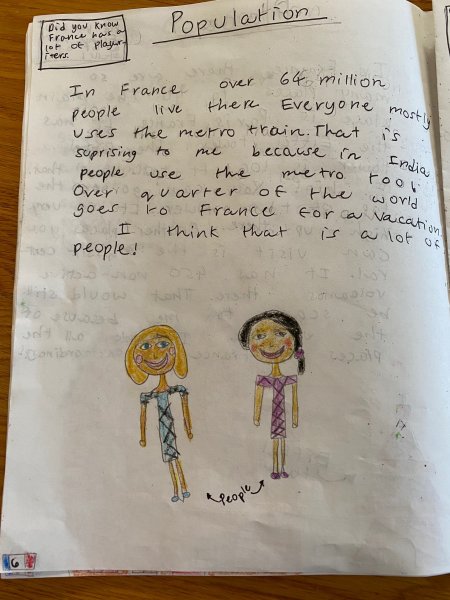 Did you know
France has a
lot of player-
iters.
Population
In France over 64 million
people live there Everyone mostly
uses the metro train. That is
suprising to me because in India
people use the metro too!
Over quarter of the world
goes to France for a vacation
I think that is a lot of
people!
people
6